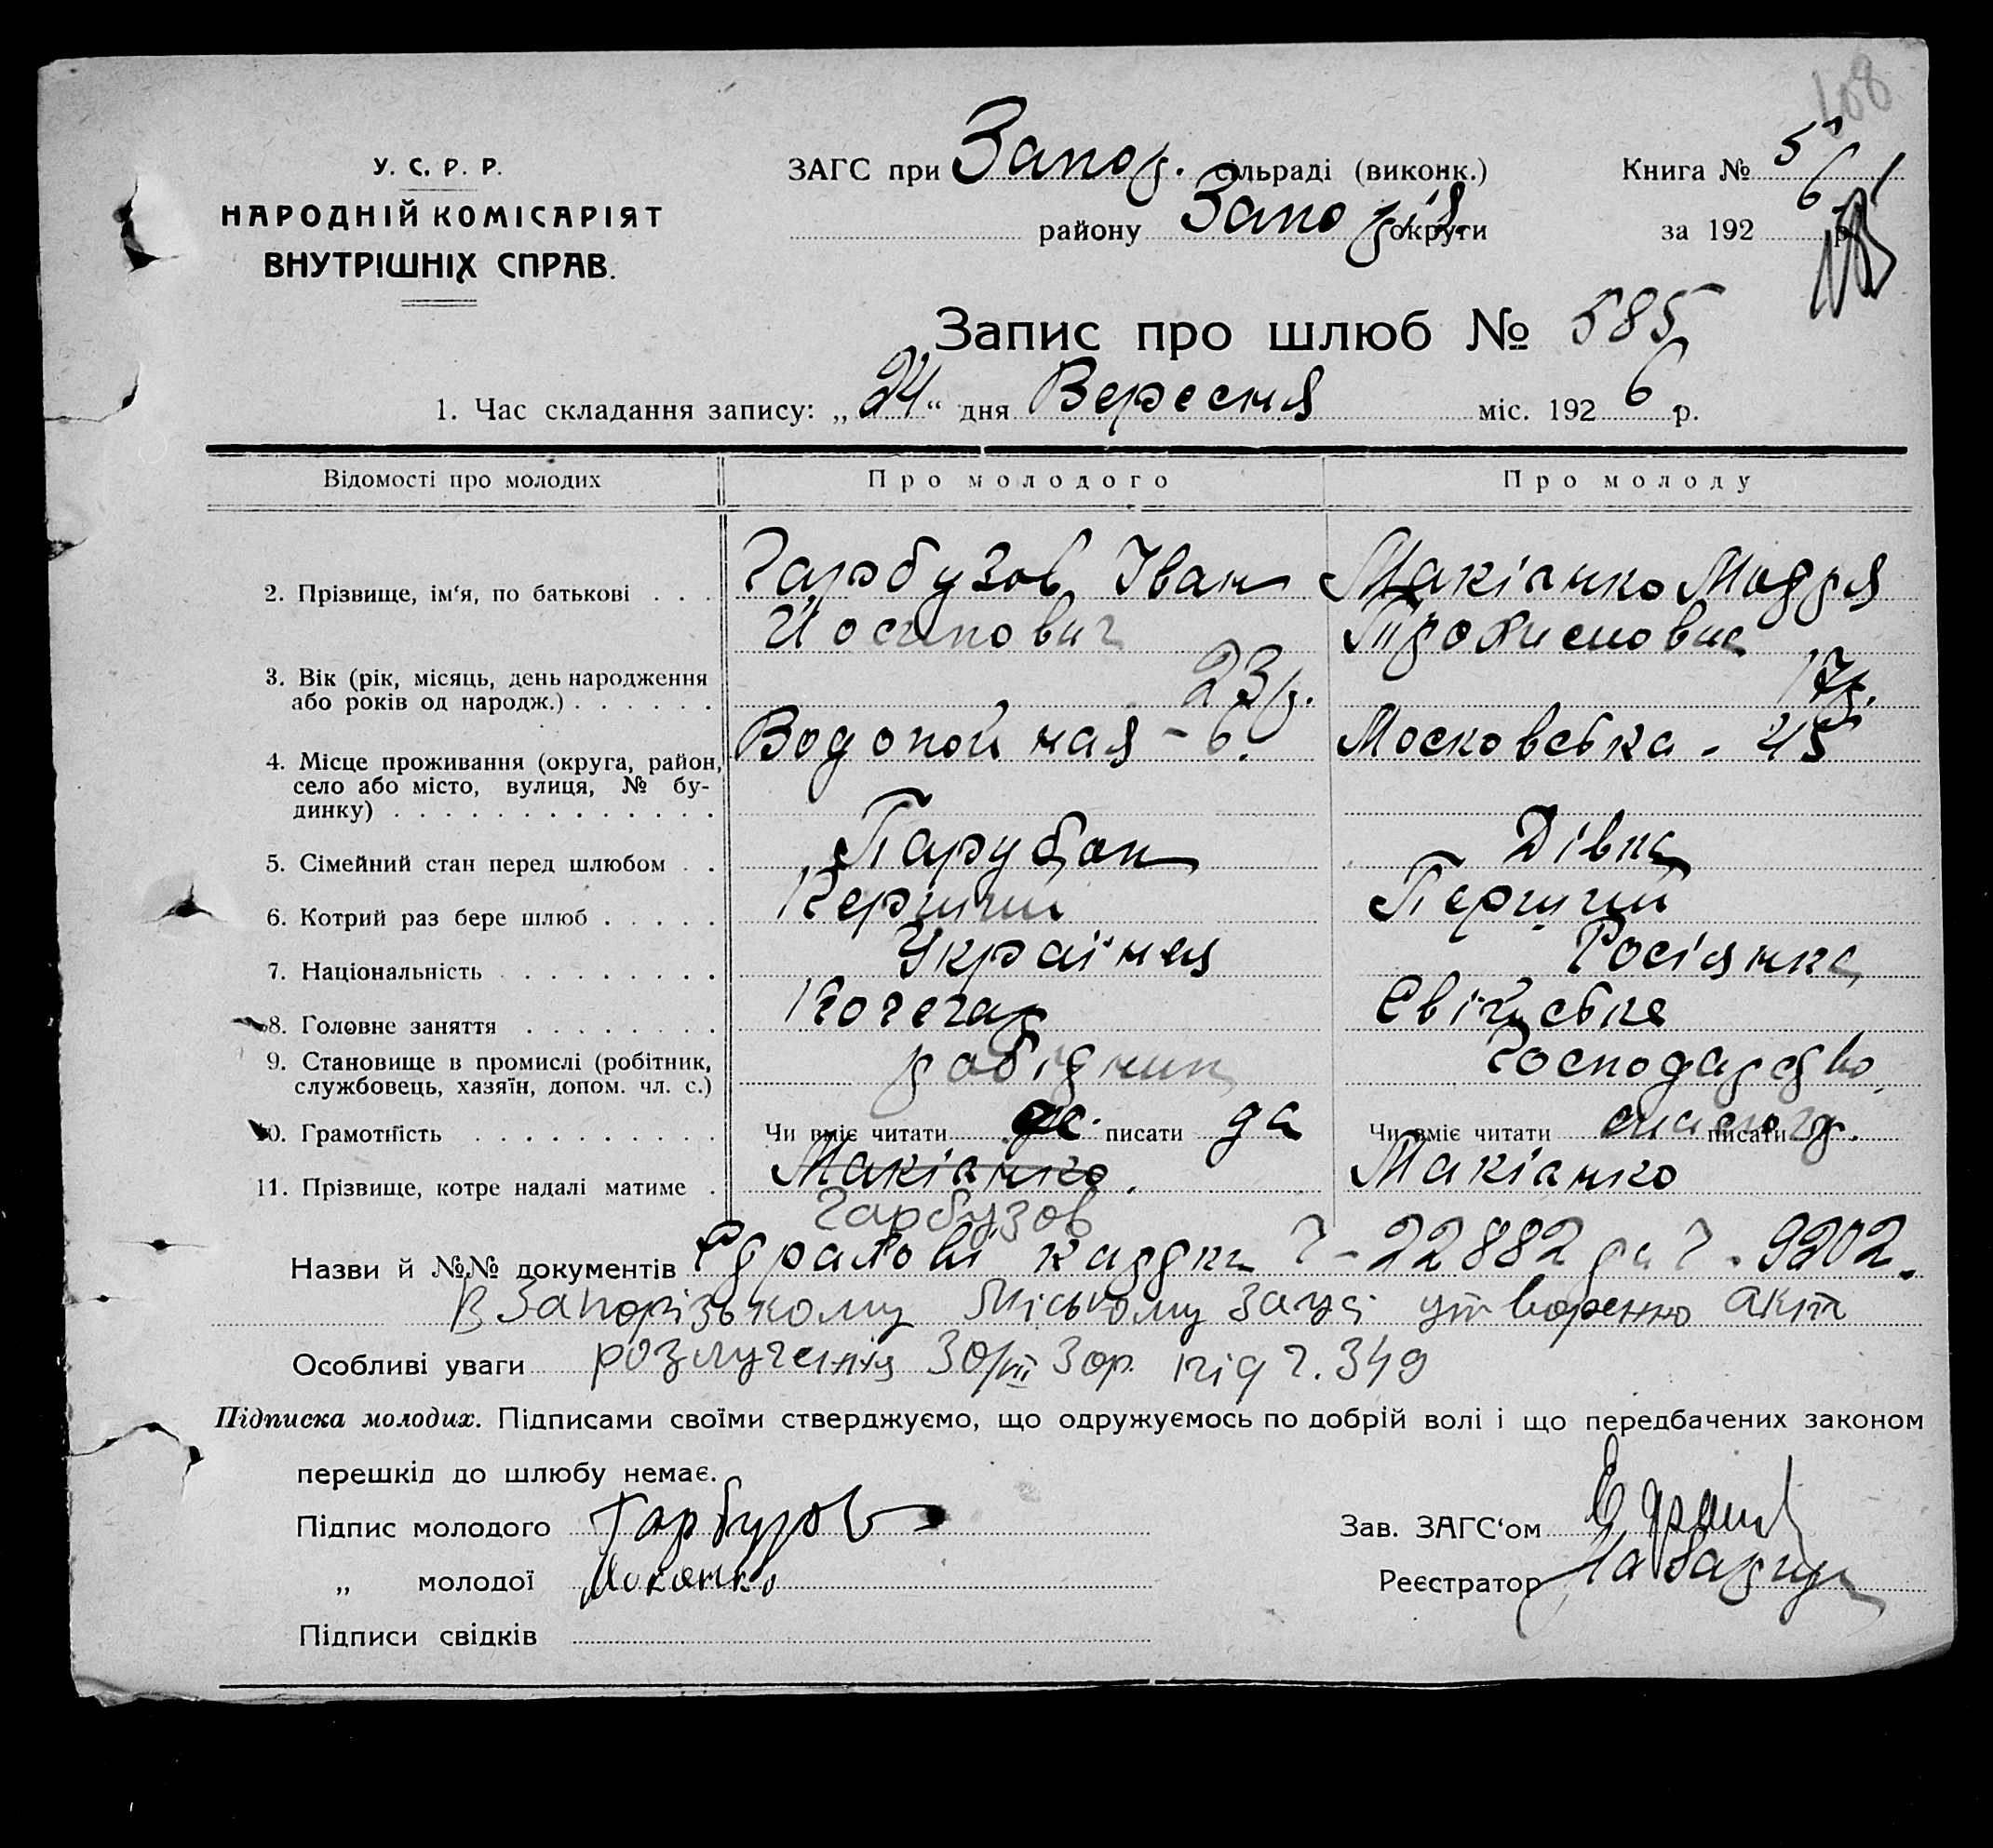 108
У. С. Р. Р.
НАРОДНІЙ КОМІСАРІЯТ
ВНУТРІШНІХ СПРАВ.
ЗАГС при Запор. сільраді (виконк.)
району Запоріз. округи
Книга № 5
за 192 6 р.
Запис про шлюб № 585
1. Час складання запису: „24“ дня Вересня міс. 192 6 р.
Відомості про молодих
Про молодого
Про молоду
2. Прізвище, ім‘я, по батькові . . .
Гарбузов Іван
Йосипович
Макіанко Мотря
3. Вік (рік, місяць, день народження
або років од народж.) . . . . . .
23 р.
17 р.
4. Місце проживання (округа, район,
село або місто, вулиця, № бу-
динку) . . . . . . . . . . . . .
Водопойная - 6.
Московська - 45
5. Сімейний стан перед шлюбом . .
Парубок
Дівка
6. Котрий раз бере шлюб . . . . .
Перший
Перший
7. Національність . . . . . . . . .
Українец
Росіянка
8. Головне заняття . . . . . . . .
Кочегар
Свійське
9. Становище в промислі (робітник,
службовець, хазяїн, допом. чл. с.)
робітник
Господарство
10. Грамотність . . . . . . . . . .
Чи вміє читати да писати да
Чи вміє читати писати
11. Прізвище, котре надалі матиме .
Макіанко.
Гарбузов
Макіанко
Назви й №№ документів Страхові картки Ч - 22882 та Ч. 9202.
В Запорізькому Міському Загсі утворенно акт
Особливі уваги розлучення 30/VII 30р. під ч. 349
Підписка молодих. Підписами своїми стверджуємо, що одружуємось по добрій волі і що передбачених законом
перешкід до шлюбу немає.
Підпис молодого Гарбузов
„ молодої Маканко
Підписи свідків
Зав. ЗАГС‘ом
Реєстратор